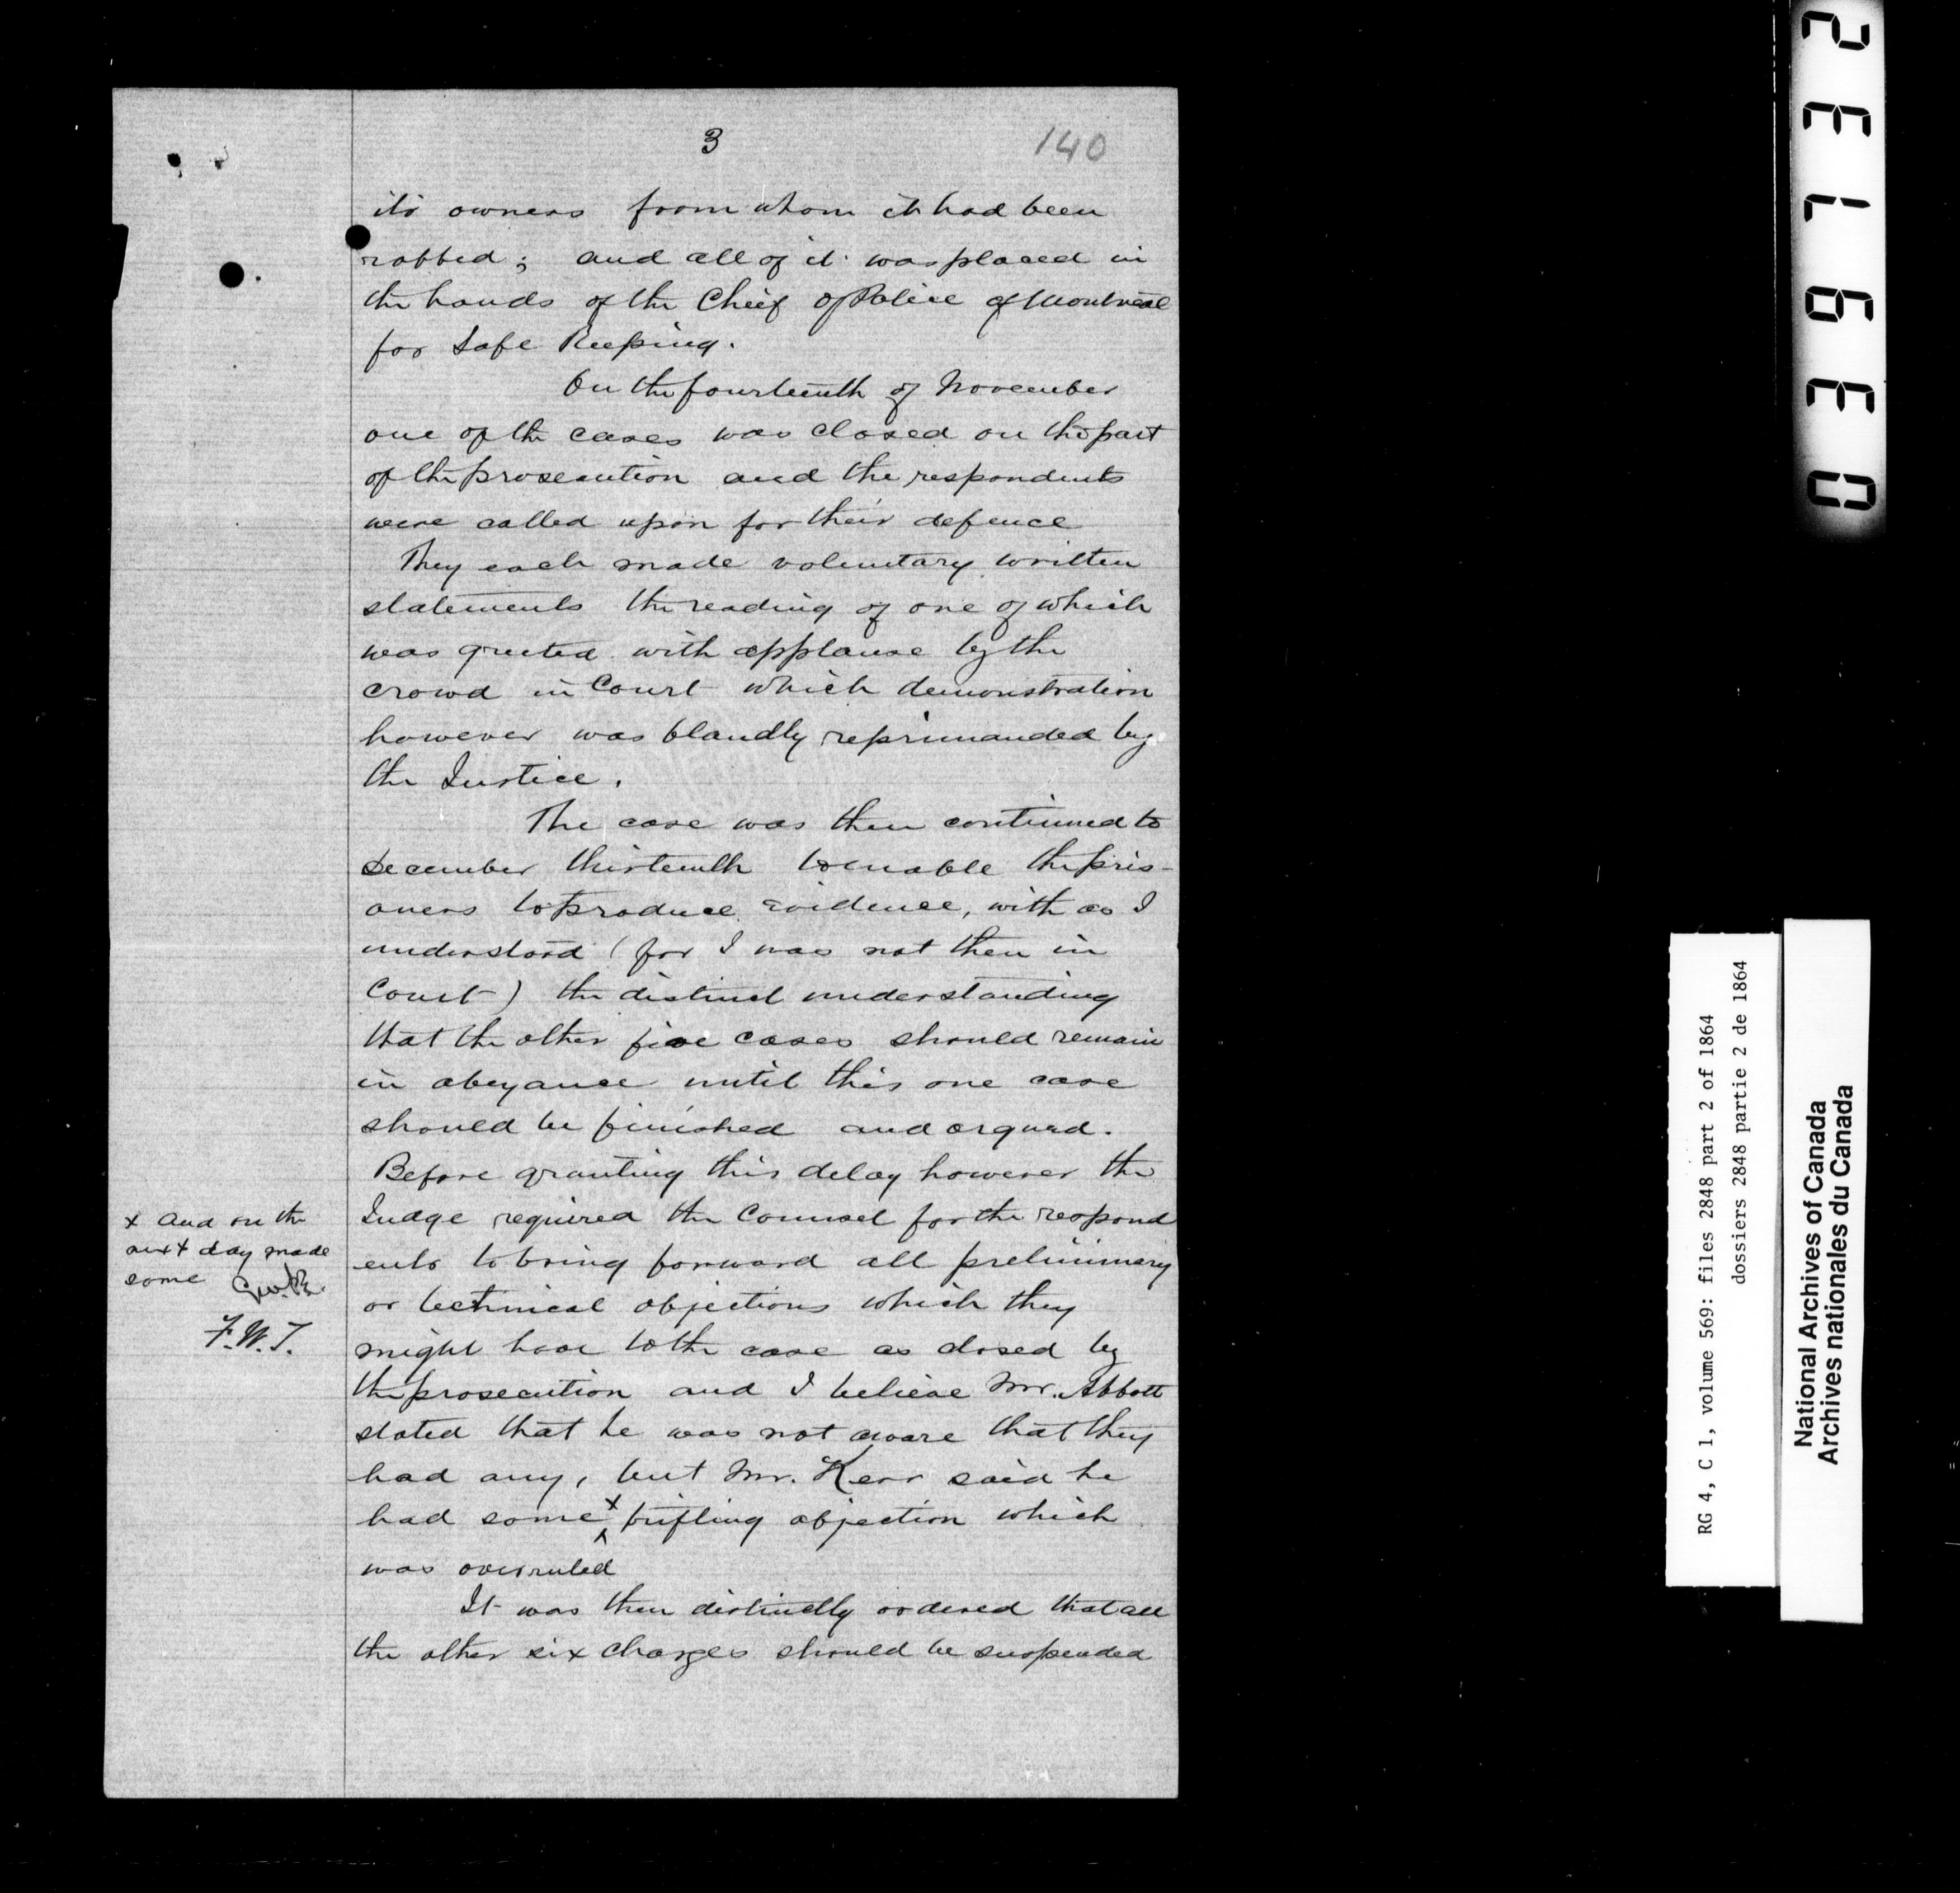 3
140
its owners from whom it had been
robbed; and all of it was placed in
the hands of the Chief of Police of Montreal
for Safe Keeping.
On the fourteenth of November
one of the cases was closed on the part
of the prosecution and the respondents
were called upon for their defence
They each made voluntary written
statements the reading of one of which
was greeted with applause by the
crowd in Court which demonstration
however was blandly reprimanded by
the Justice.
The case was then continued to
December thirteenth to enable the pris-
oners to produce evidence, with as I
understood (for I was not then in
Court) the distinct understanding
that the other five cases should remain
in abeyance until this one case
should be finished and argued.
Before granting this delay however the
Judge required the Counsel for the respond
ents to bring forward all preliminary
or technical objections which they
might have to the case as closed by
the prosecution and I believe Mr. Abbott
stated that he was not aware that they
had any, but Mr. Kerr said he
had some x trifling objection which
was overruled
It was then distinctly ordered that all
the other six charges should be suspended
x and on the
next day made
some
F.W.T.
0396132
RG 4, C 1, volume 569: files 2848 part 2 of 1864
dossiers 2848 partie 2 de 1864
National Archives of Canada
Archives nationales du Canada